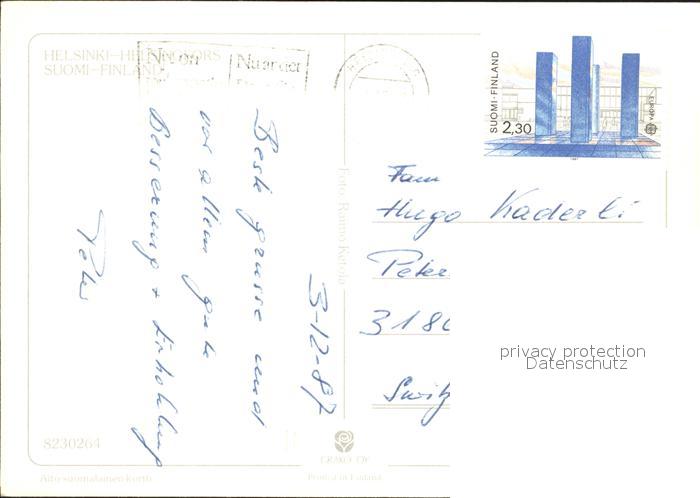 HELSINKI-HELSINGFORS
SUOMI-FINLAND
Nuoret
SUOMI-FINLAND
2,30
EUROPA
3-12-87
Beste grüsse und
vor allem gute
Besserung + Erholung
Peter
Foto Raimo Ketola
Fam
Hugo Kaderli
Peter
318
Switz
privacy protection
Datenschutz
8230264
Aito suomalainen kortti
Printed in Finland